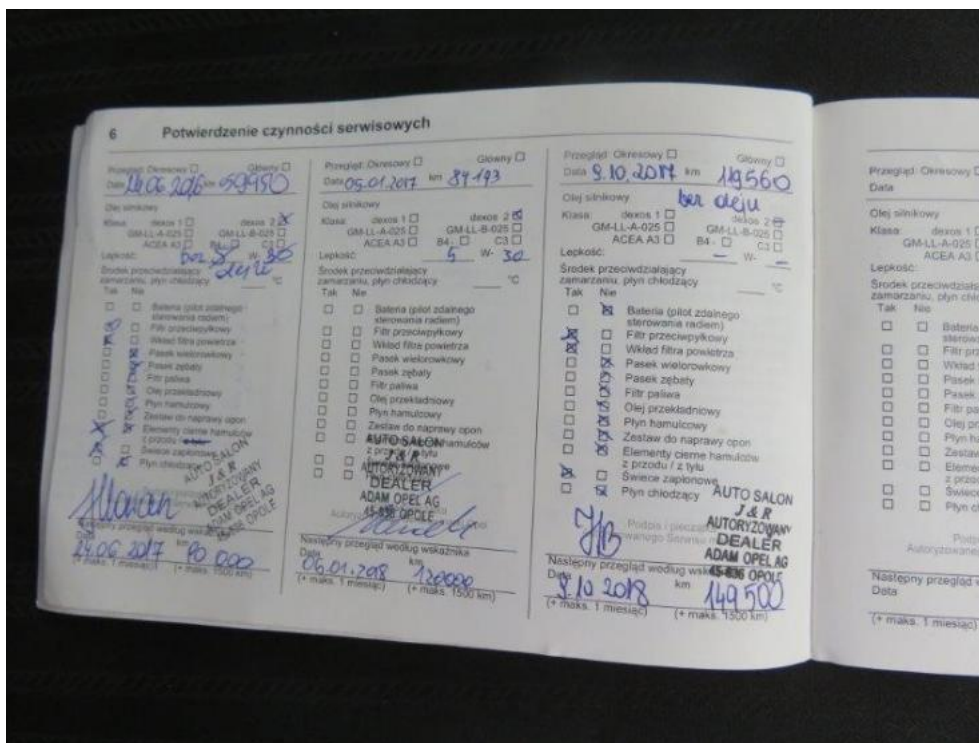 6 Potwierdzenie czynności serwisowych
Przegląd: Okresowy ☐ Główny ☐
Data 24.06.2016 km 59950
Olej silnikowy
Klasa: dexos 1 ☐ dexos 2 ☒
GM-LL-A-025 ☐ GM-LL-B-025 ☐
ACEA A3 ☐ B4 - ☐ C3 ☐
Lepkość: bez W- 30
oleju
Środek przeciwdziałający
zamarzaniu, płyn chłodzący °C
Tak Nie
Bateria (pilot zdalnego
sterowania radiem)
Filtr przeciwpyłkowy
Wkład filtra powietrza
Pasek wielorowkowy
Pasek zębaty
Filtr paliwa
Olej przekładniowy
Płyn hamulcowy
Zestaw do naprawy opon
Elementy cierne hamulców
z przodu /
Świece zapłonowe
Płyn chłodzący
AUTO SALON
J & R
AUTORYZOWANY
DEALER
ADAM OPEL AG
45-836 OPOLE
Następny przegląd według wskaźnika
Data km
24.06.2017 90 000
(+ maks. 1 miesiąc) (+ maks. 1500 km)
Przegląd: Okresowy ☐ Główny ☐
Data 05.01.2017 km 89193
Olej silnikowy
Klasa: dexos 1 ☐ dexos 2 ☒
GM-LL-A-025 ☐ GM-LL-B-025 ☐
ACEA A3 ☐ B4 - ☐ C3 ☐
Lepkość: 5 W- 30
Środek przeciwdziałający
zamarzaniu, płyn chłodzący °C
Tak Nie
Bateria (pilot zdalnego
sterowania radiem)
Filtr przeciwpyłkowy
Wkład filtra powietrza
Pasek wielorowkowy
Pasek zębaty
Filtr paliwa
Olej przekładniowy
Płyn hamulcowy
Zestaw do naprawy opon
hamulców
z przodu / z tyłu
AUTO SALON
J & R
AUTORYZOWANY
DEALER
ADAM OPEL AG
45-836 OPOLE
Następny przegląd według wskaźnika
Data km
06.01.2018 120000
(+ maks. 1 miesiąc) (+ maks. 1500 km)
Przegląd: Okresowy ☐ Główny ☐
Data 9.10.2017 km 119560
Olej silnikowy bez oleju
Klasa: dexos 1 ☐ dexos 2 ☒
GM-LL-A-025 ☐ GM-LL-B-025 ☐
ACEA A3 ☐ B4 - ☐ C3 ☐
Lepkość: - W- -
Środek przeciwdziałający
zamarzaniu, płyn chłodzący °C
Tak Nie
☐ ☒ Bateria (pilot zdalnego
sterowania radiem)
☒ ☐ Filtr przeciwpyłkowy
☒ ☐ Wkład filtra powietrza
☐ ☒ Pasek wielorowkowy
☐ ☒ Pasek zębaty
☐ ☒ Filtr paliwa
☐ ☒ Olej przekładniowy
☐ ☒ Płyn hamulcowy
☐ ☒ Zestaw do naprawy opon
☐ ☒ Elementy cierne hamulców
z przodu / z tyłu
☒ ☐ Świece zapłonowe
☐ ☒ Płyn chłodzący
AUTO SALON
J & R
AUTORYZOWANY
DEALER
ADAM OPEL AG
45-836 OPOLE
Następny przegląd według
Data km
9.10 2018 149500
(+ maks. 1 miesiąc) (+ maks. 1500 km)
Przegląd: Okresowy ☐
Data
Olej silnikowy
Klasa: dexos 1
GM-LL-A-025
ACEA A3
Lepkość:
Środek
zamarzaniu, płyn
Tak Nie
Następny przegląd
Data
(+ maks. 1 miesiąc)